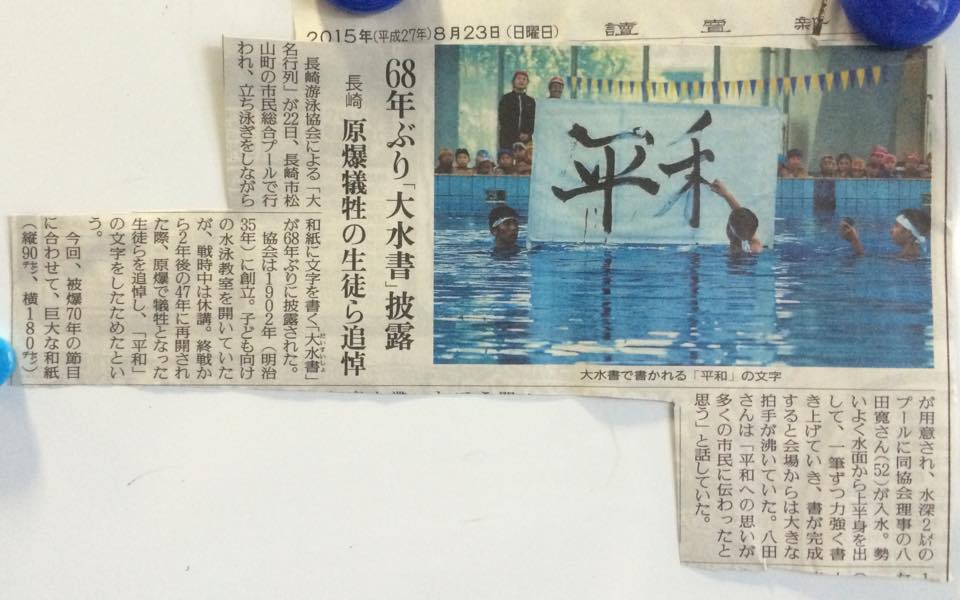 2015年(平成27年)8月23日(日曜日) 讀賣新
68年ぶり「大水書」披露
長崎 原爆犠牲の生徒ら追悼
長崎游泳協会による「大
名行列」が22日、長崎市松
山町の市民総合プールで行
われ、立ち泳ぎをしながら
和紙に文字を書く「大水書」
が68年ぶりに披露された。
協会は1902年(明治
35年)に創立。子ども向け
の水泳教室を開いていた
が、戦時中は休講。終戦か
ら2年後の47年に再開され
た際、原爆で犠牲となった
生徒らを追悼し、「平和」
の文字をしたためたとい
う。
今回、被爆70年の節目
に合わせて、巨大な和紙
(縦90㌢、横180㌢)
が用意され、水深2㍍の
プールに同協会理事の八
田寛さん(52)が入水。勢
いよく水面から上半身を出
して、一筆ずつ力強く書
き上げていき、書が完成
すると会場からは大きな
拍手が沸いていた。八田
さんは「平和への思いが
多くの市民に伝わったと
思う」と話していた。
平和
大水書で書かれる「平和」の文字